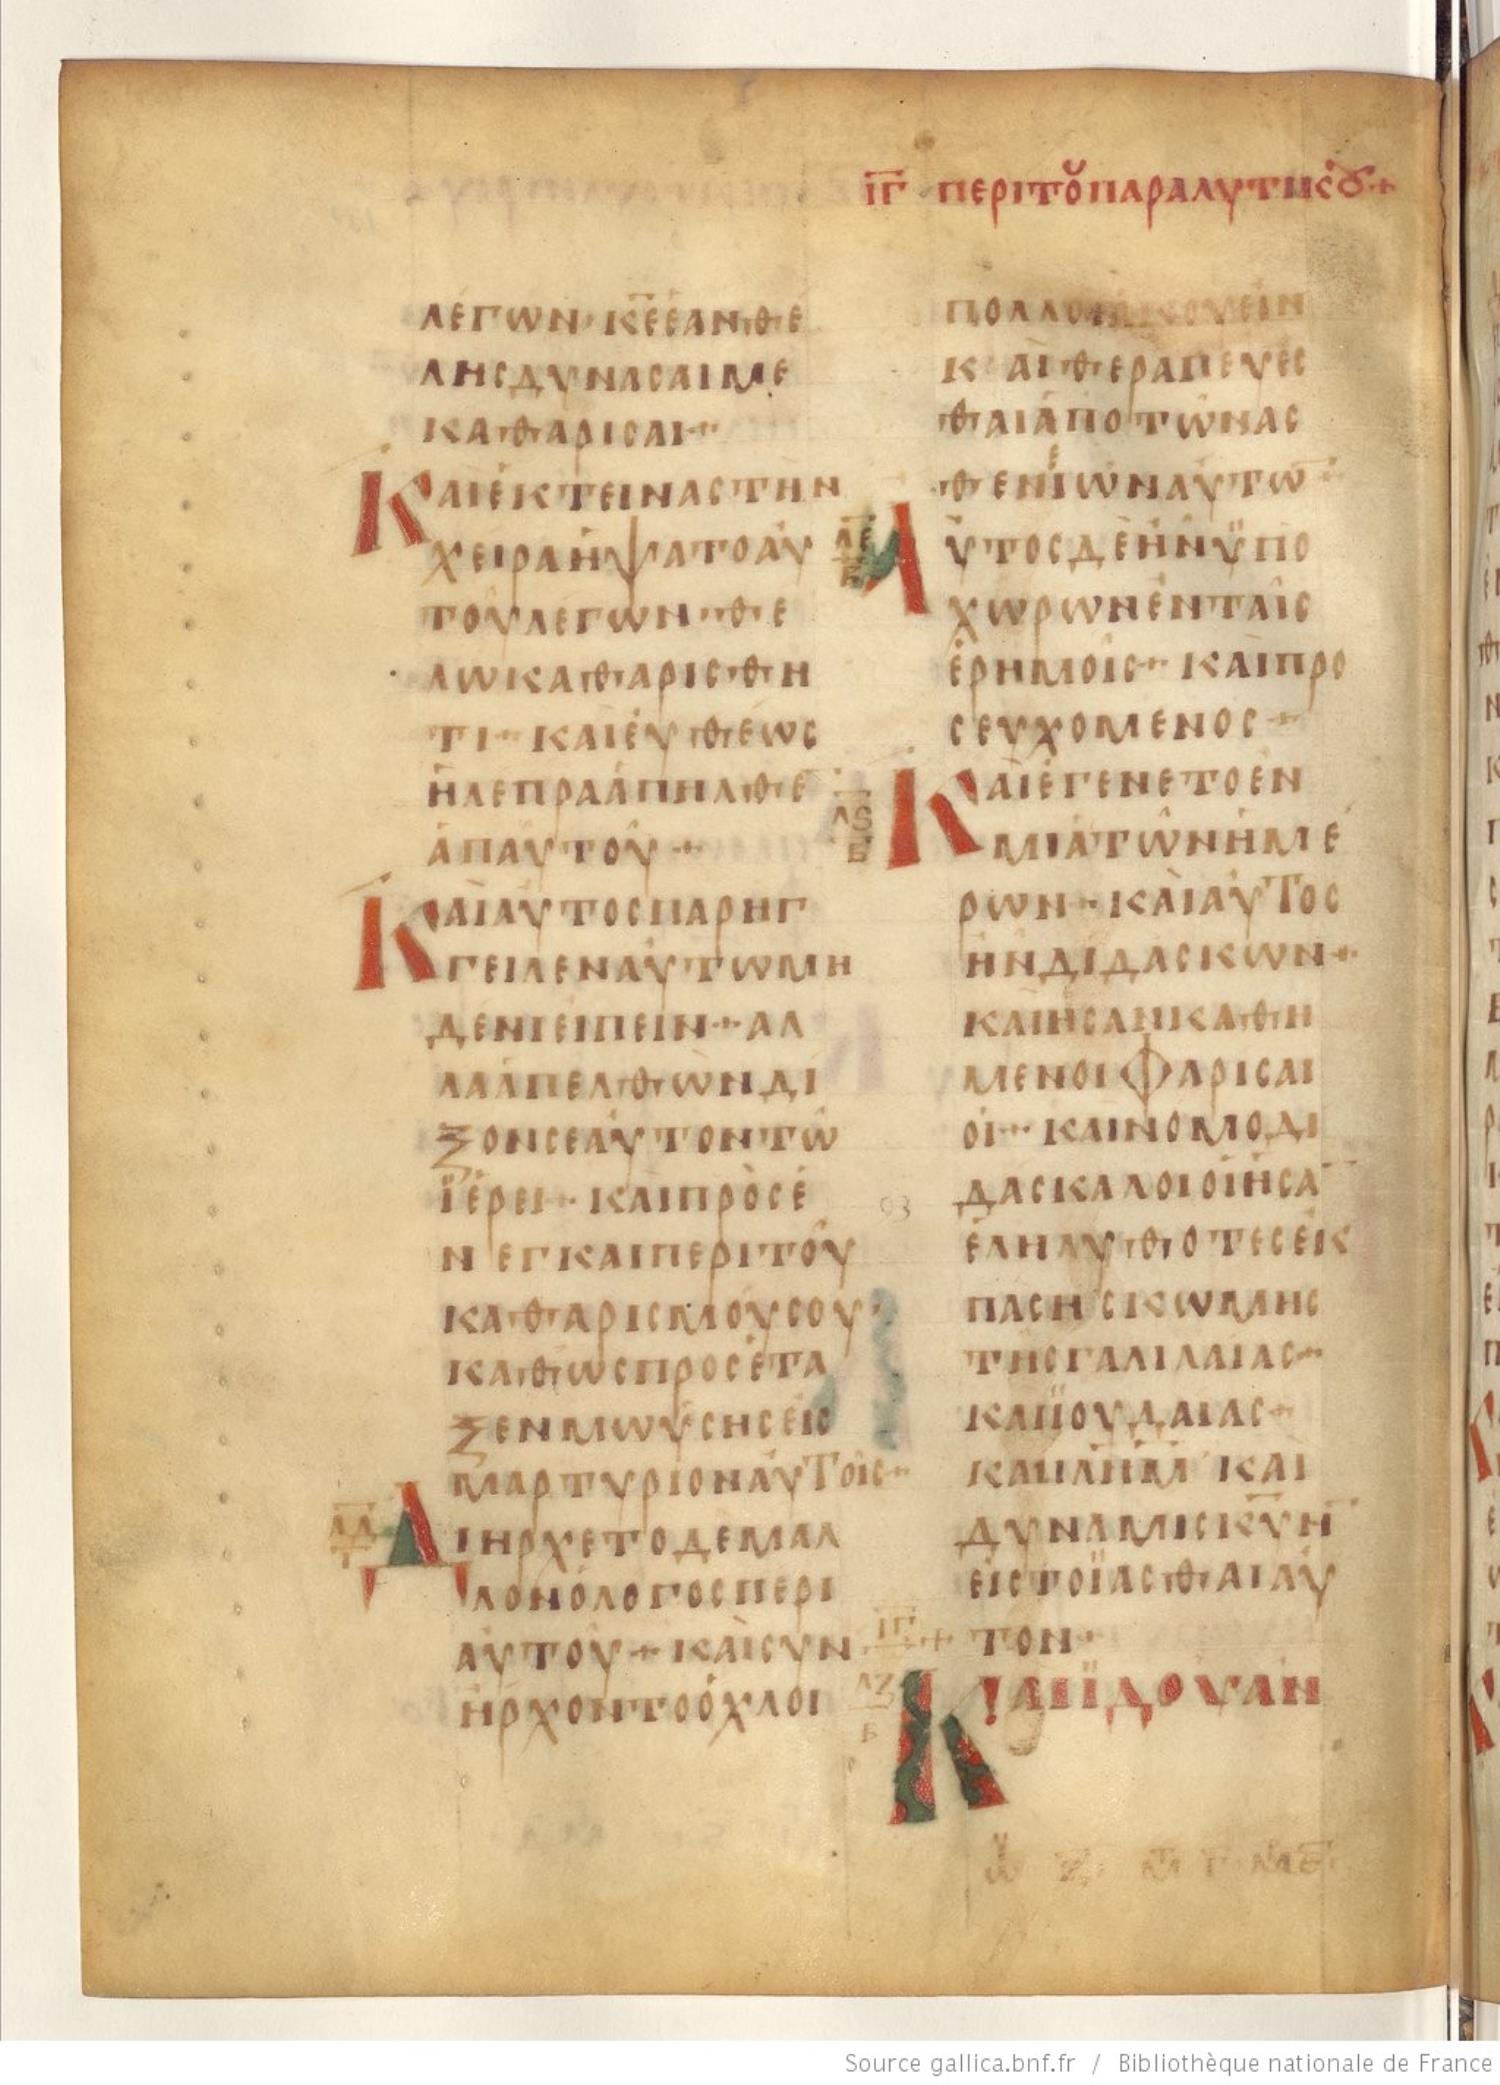 ΙΓ ΠΕΡΙ ΤΟΥ ΠΑΡΑΛΥΤΙΚΟΥ+
ΛΕΓΩΝ· ΚΕ ΕΑΝ ΘΕ
ΛΗΣ ΔΥΝΑΣΑΙ ΜΕ
ΚΑΘΑΡΙΣΑΙ+
ΚΑΙ ΕΚΤΕΙΝΑΣ ΤΗΝ
ΧΕΙΡΑ ΗΨΑΤΟ ΑΥ
ΤΟΥ ΛΕΓΩΝ· ΘΕ
ΛΩ ΚΑΘΑΡΙΣΘΗ
ΤΙ+ ΚΑΙ ΕΥΘΕΩΣ
Η ΛΕΠΡΑ ΑΠΗΛΘΕ
ΑΠ ΑΥΤΟΥ+
ΚΑΙ ΑΥΤΟΣ ΠΑΡΗΓ
ΓΕΙΛΕΝ ΑΥΤΩ ΜΗ
ΔΕΝΙ ΕΙΠΕΙΝ+ ΑΛ
ΛΑ ΑΠΕΛΘΩΝ ΔΙ
ΞΟΝ ΣΕΑΥΤΟΝ ΤΩ
ΪΕΡΕΙ+ ΚΑΙ ΠΡΟΣΕ
ΝΕΓΚΑΙ ΠΕΡΙ ΤΟΥ
ΚΑΘΑΡΙΣΜΟΥ ΣΟΥ·
ΚΑΘΩΣ ΠΡΟΣΕΤΑ
ΞΕΝ ΜΩΥΣΗΣ ΕΙΣ
ΜΑΡΤΥΡΙΟΝ ΑΥΤΟΙΣ+
ΛΔ
ΔΙΗΡΧΕΤΟ ΔΕ ΜΑΛ
ΛΟΝ Ο ΛΟΓΟΣ ΠΕΡΙ
ΑΥΤΟΥ+ ΚΑΙ ΣΥΝ
ΗΡΧΟΝΤΟ ΟΧΛΟΙ
ΠΟΛΛΟΙ ΑΚΟΥΕΙΝ
ΚΑΙ ΘΕΡΑΠΕΥΕΣ
ΘΑΙ ΑΠΟ ΤΩΝ ΑΣ
ΘΕΝΙΩΝ ΑΥΤΩ̅
ΛΕ
Β
ΑΥΤΟΣ ΔΕ ΗΝ ΫΠΟ
ΧΩΡΩΝ ΕΝ ΤΑΙΣ
ΕΡΗΜΟΙΣ+ ΚΑΙ ΠΡΟ
ΣΕΥΧΟΜΕΝΟΣ+
ΛϚ
Β
ΚΑΙ ΕΓΕΝΕΤΟ ΕΝ
ΜΙΑ ΤΩΝ ΗΜΕ
ΡΩΝ+ ΚΑΙ ΑΥΤΟΣ
ΗΝ ΔΙΔΑΣΚΩΝ+
ΚΑΙ ΗΣΑΝ ΚΑΘΗ
ΜΕΝΟΙ ΦΑΡΙΣΑΙ
ΟΙ+ ΚΑΙ ΝΟΜΟΔΙ
ΔΑΣΚΑΛΟΙ ΟΙ ΗΣΑ̅
ΕΛΗΛΥΘΟΤΕΣ ΕΚ
ΠΑΣΗΣ ΚΩΜΗΣ
ΤΗΣ ΓΑΛΙΛΑΙΑΣ+
ΚΑΙ ΪΟΥΔΑΙΑΣ+
ΚΑΙ ΙΛΗΜ ΚΑΙ
ΔΥΝΑΜΙΣ ΚΥ ΗΝ
ΕΙΣ ΤΟ ΪΑΣΘΑΙ ΑΥ
ΤΟΝ+
ΙΓ
ΛΖ
Β
ΚΑΙ ΪΔΟΥ ΑΝ
93
Source gallica.bnf.fr / Bibliothèque nationale de France